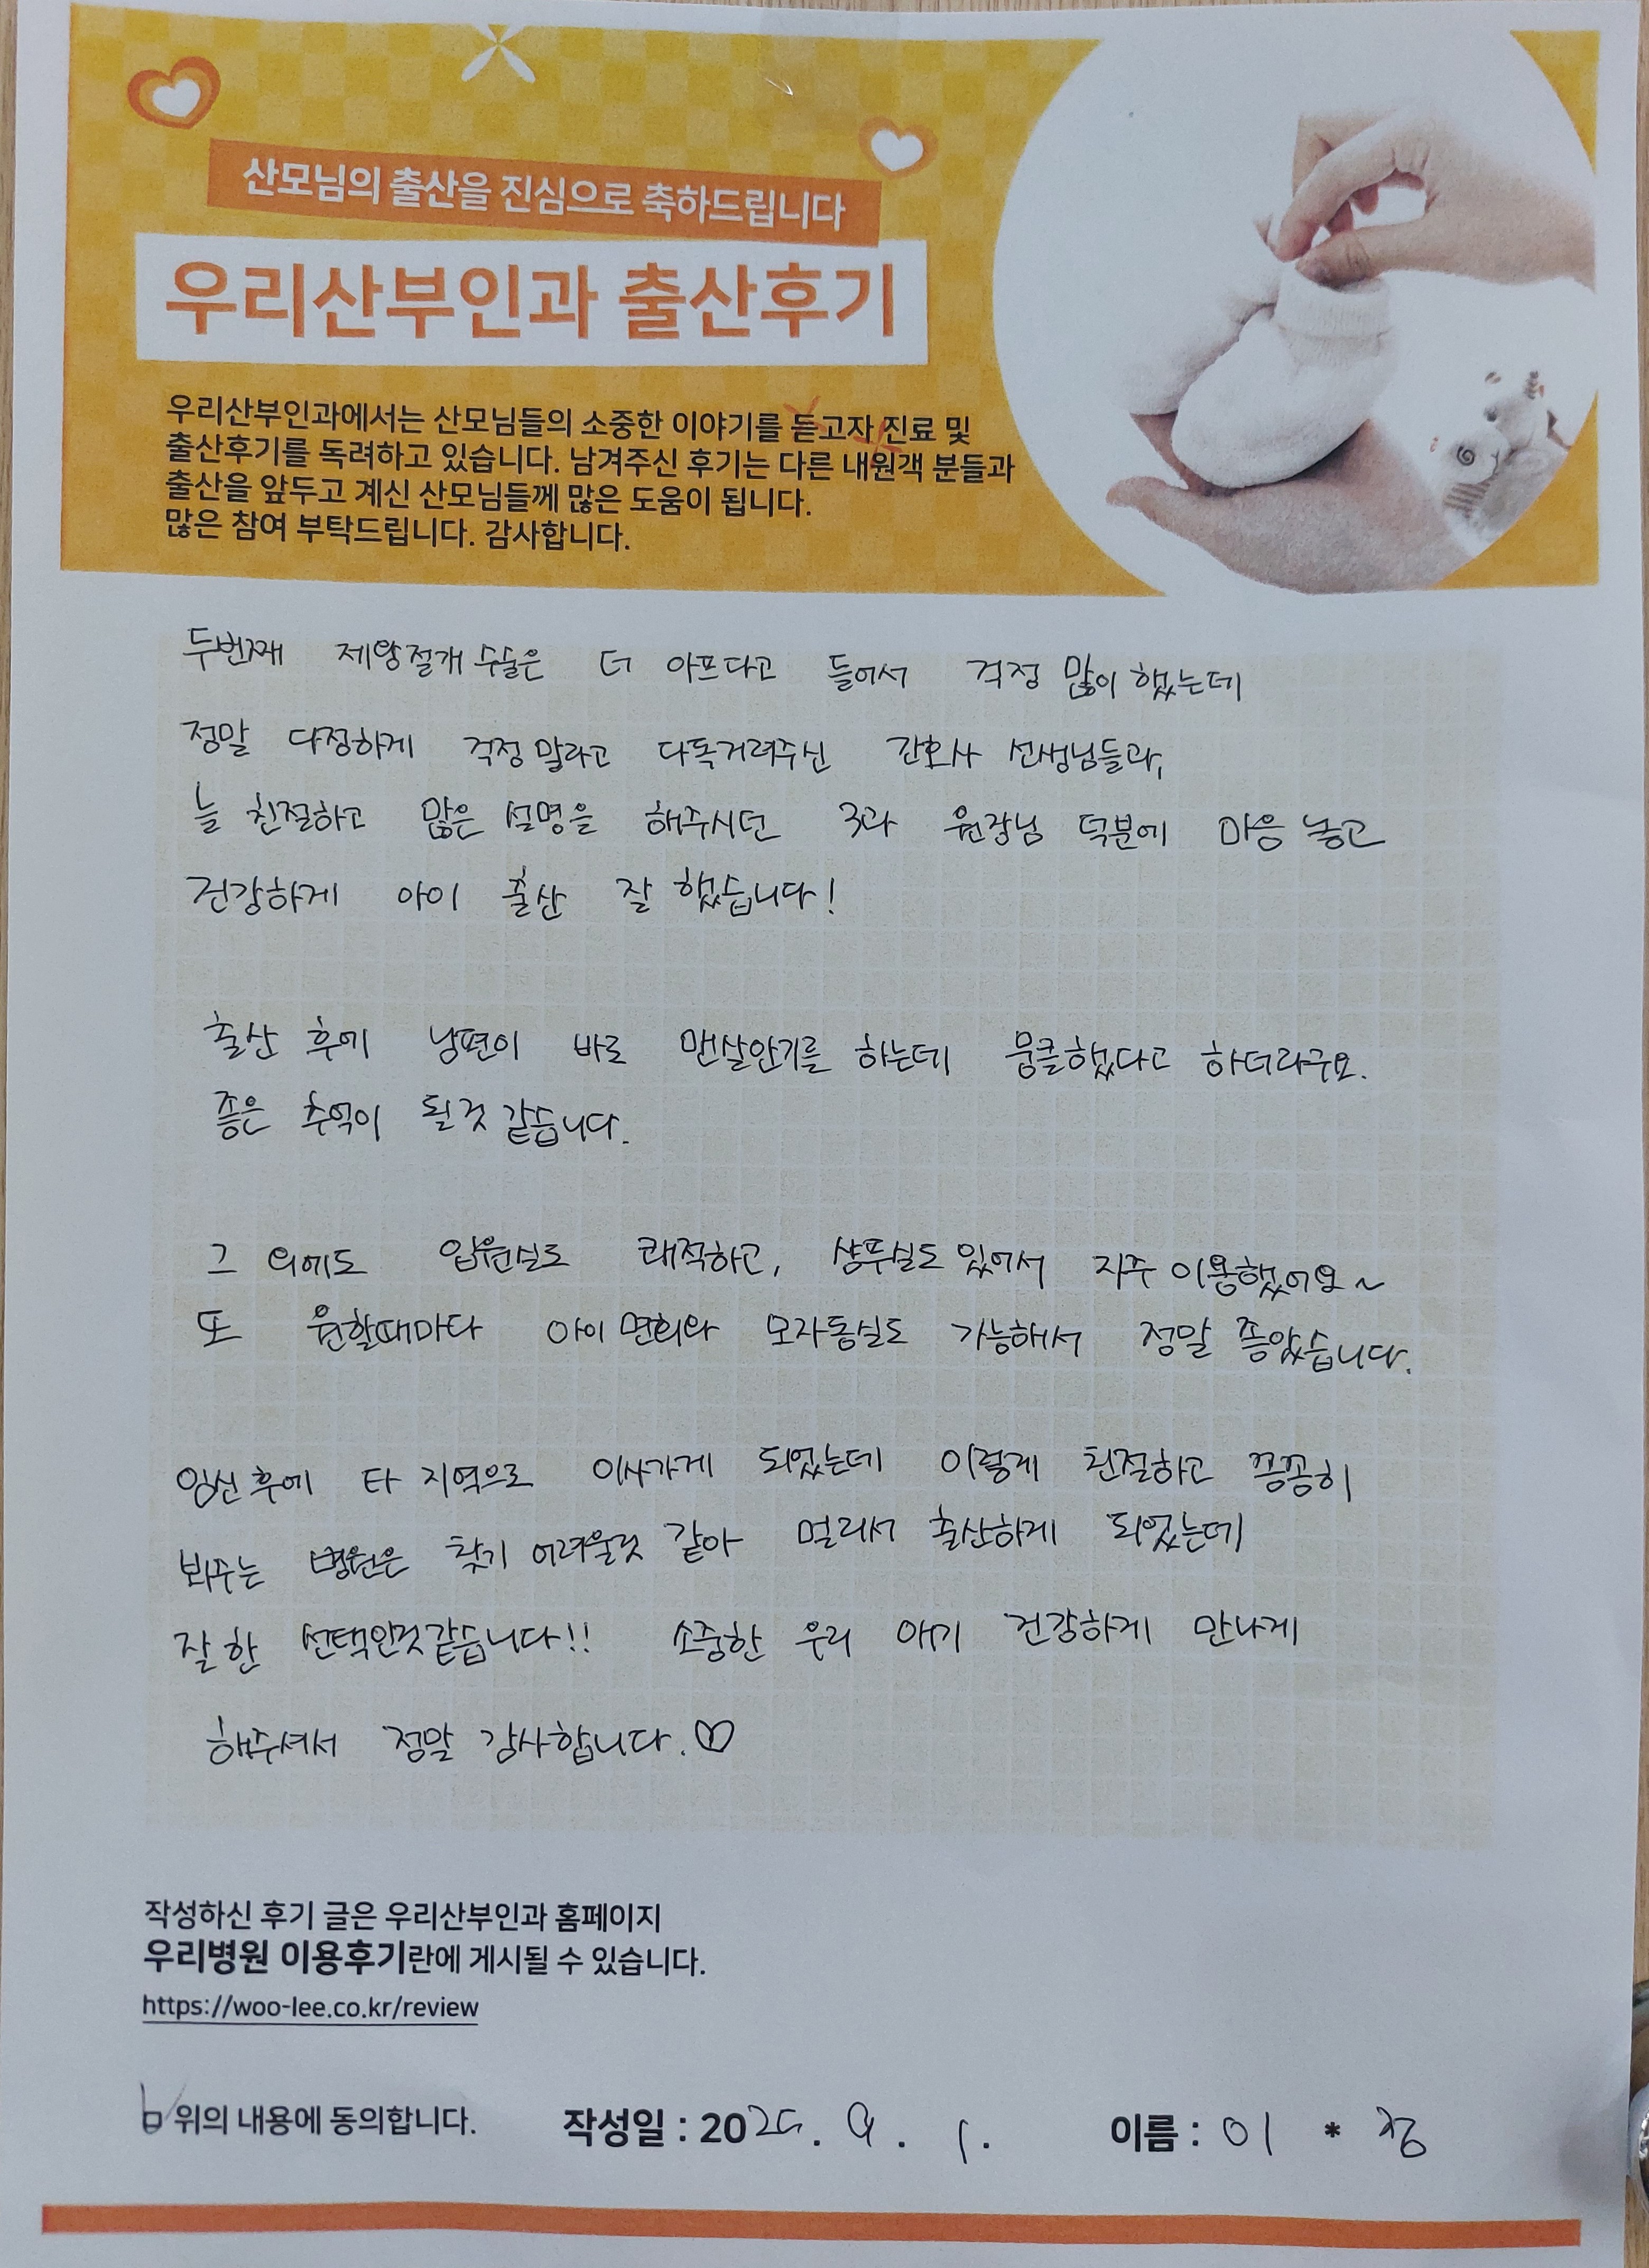 산모님의 출산을 진심으로 축하드립니다
우리산부인과 출산후기
우리산부인과에서는 산모님들의 소중한 이야기를 듣고자 진료 및
출산후기를 독려하고 있습니다. 남겨주신 후기는 다른 내원객 분들과
출산을 앞두고 계신 산모님들께 많은 도움이 됩니다.
많은 참여 부탁드립니다. 감사합니다.
두번째 제왕절개 수술은 더 아프다고 들어서 걱정 많이 했는데
정말 다정하게 걱정말라고 다독거려주신 간호사 선생님들과,
늘 친절하고 많은 설명을 해주시던 3과 원장님 덕분에 마음 놓고
건강하게 아이 출산 잘 했습니다!
출산 후에 남편이 바로 맨살안기를 하는데 뭉클했다고 하더라구요.
좋은 추억이 될것 같습니다.
그 외에도 입원실도 쾌적하고, 샴푸실도 있어서 자주 이용했어요~
또 원할때마다 아이 면회와 모자동실도 가능해서 정말 좋았습니다.
임신 후에 타 지역으로 이사가게 되었는데 이렇게 친절하고 꼼꼼히
봐주는 병원은 찾기 어려울것 같아 멀리서 출산하게 되었는데
잘한 선택인것같습니다!! 소중한 우리 아기 건강하게 만나게
해주셔서 정말 감사합니다.♡
작성하신 후기 글은 우리산부인과 홈페이지
우리병원 이용후기란에 게시될 수 있습니다.
https://woo-lee.co.kr/review
위의 내용에 동의합니다. 작성일 : 2025. 9. 1. 이름 : 이 *